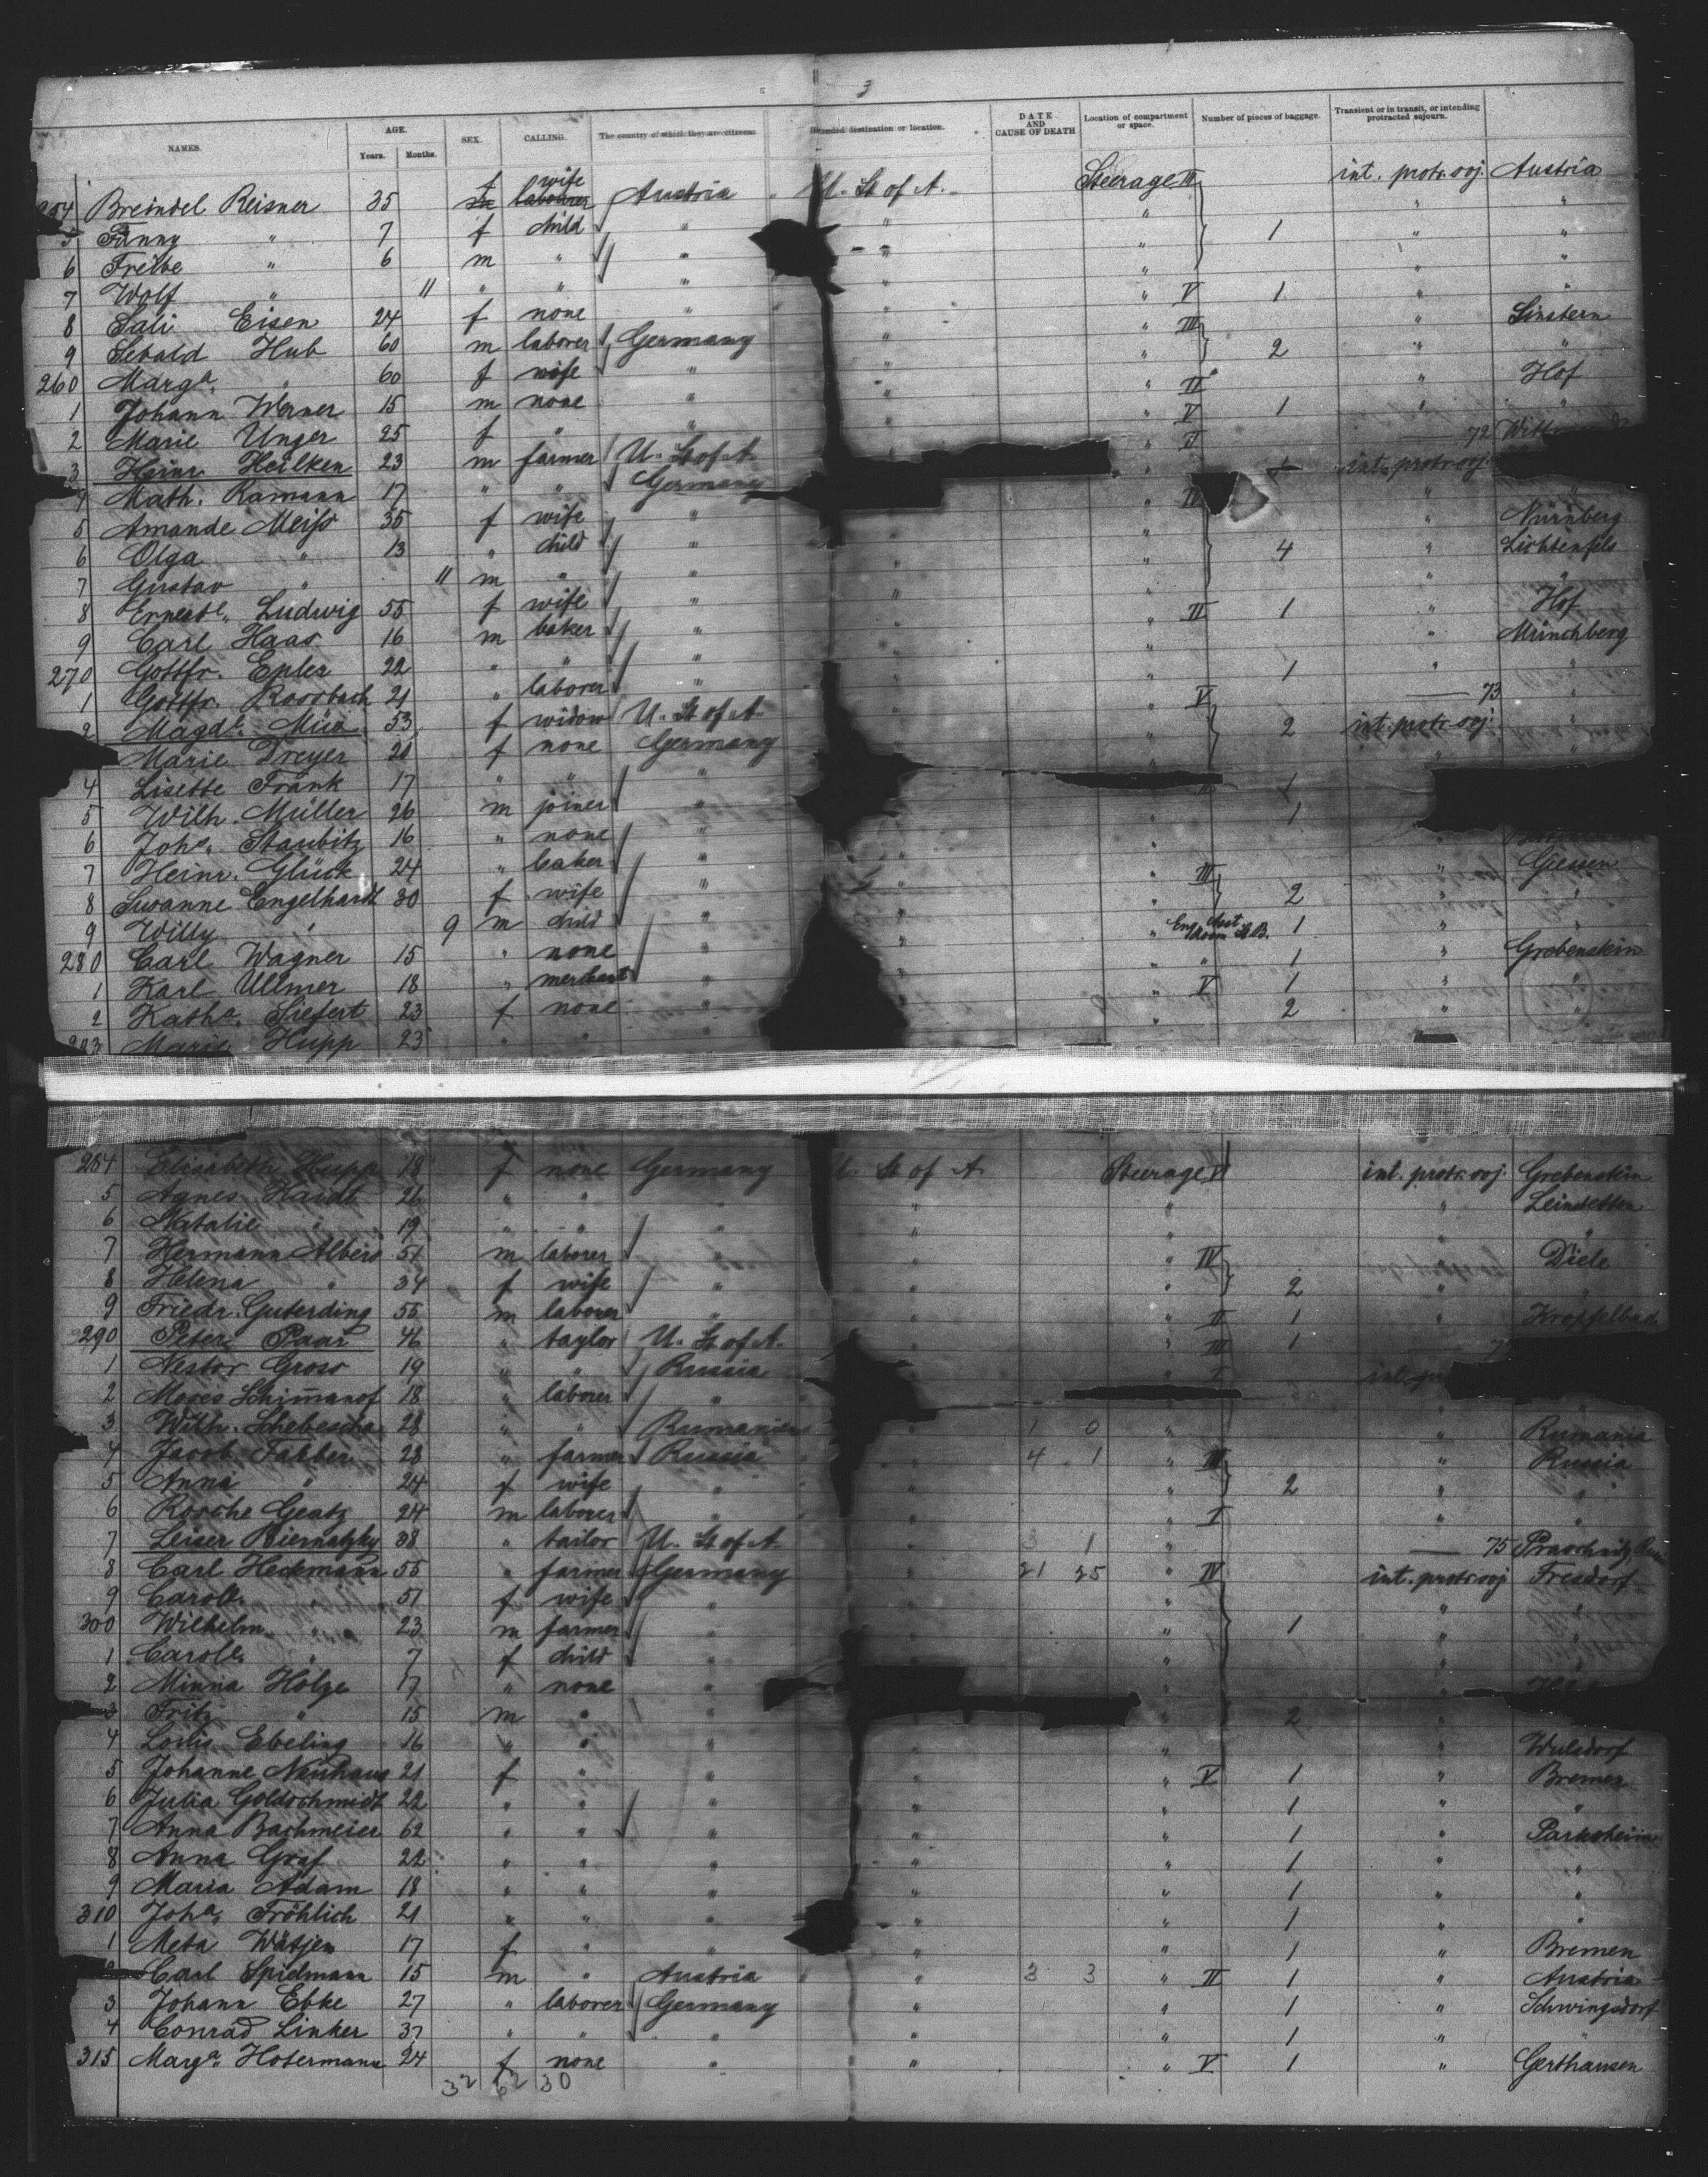 3
NAMES. AGE. Years. Months. SEX. CALLING. The country of which they are citizens. Intended destination or location. DATE AND CAUSE OF DEATH Location of compartment or space. Number of pieces of baggage. Transient or in transit, or intending protracted sojourn.
254 Breindel Reisner 35 f wife Austria U. St of A. Steerage III int. protr. soj. Austria
5 Fanny " 7 f child " " " 1 " "
6 Freibe " 6 m " " " " " "
7 Wolf " 11 " " " " " " "
8 Sali Eisen 24 f none " " " V 1 "
9 Sebald Hub 60 m laborer Germany " " III 2 " Sinstern
260 Marga. " 60 f wife " " " " "
1 Johann Werner 15 m none " " " II " Hof
2 Marie Unger 25 f " " " " V 1 " "
3 Heinr. Heilken 23 m farmer U. St of A. " II 72
4 Math. Ramann 17 " " Germany int. protr. soj.
5 Amande Meiss 35 f wife " " " IV " "
6 Olga " 13 " child " " " 4 " Nürnberg
7 Gustav " 11 m " " " " " Lichtenfels
8 Ernestе. Ludwig 55 f wife " " " " "
9 Carl Haas 16 m baker " " " II 1 " Hof
270 Gottfr. Epler 22 " " " " " " Münchberg
1 Gottfr. Roorbach 21 " laborer " " " 1 " "
2 Magde. Müa 53 f widow U. St of A. " V 73 "
Marie Dreyer 20 f none Germany " " 2 int. protr. soj. "
4 Lisette Frank 17 " " " " "
5 Wilh. Müller 26 m joiner " 1
6 Joha. Staubitz 16 " none " " 1
7 Heinr. Glück 24 " baker " "
8 Susanne Engelhardt 30 f wife " " " III 2 " Giessen
9 Willy " 9 m child " " " "
280 Carl Wagner 15 " none " " " 1 "
1 Karl Ullmer 18 " merchant " " " 1 " Grebenstein
2 Katha. Siefert 23 f none " " " V 1 " "
283 Marie Hupp 23 " " " " " 2 " "
284 Elisabeth Hupp 18 f none Germany U. St of A. Steerage V int. protr. soj. Grebenstein
5 Agnes Haidt 26 " " " " " " Leinstetten
6 Natalie " 19 " " " " " " "
7 Hermann Albers 51 m laborer " " " IV " Diele
8 Helena " 34 f wife " " " 2 " "
9 Friedr. Guterding 55 m laborer " " " II 1 "
290 Peter Paar 46 " taylor U. St of A. " " III 1
1 Nestor Gross 19 " " Russia " " I
2 Moses Schimanof 18 " laborer " " "
3 Wilh. Schebescha 28 " " Rumanien " 1 0 " " Rumania
4 Jacob Farber 28 " farmer Russia " 4 1 " III " Russia
5 Anna " 24 f wife " " " 2 " "
6 Rosche Geatz 24 m laborer " " " I " "
7 Leiser Biernatzky 38 " tailor U. St of A. " 3 1 " 75
8 Carl Heckmann 55 " farmer Germany " 21 25 " IV int. protr. soj. Fresdorf
9 Carole. " 51 f wife " " " " "
300 Wilhelm " 23 m farmer " " " 1 " "
1 Carole. " 7 f child " " " " "
2 Minna Holze 17 " none " " "
3 Fritz " 15 m " " " 2 "
4 Louis Ebeling 16 " " " " " " Wulsdorf
5 Johanne Neuhaus 21 f " " " " V 1 " Bremen
6 Julia Goldschmidt 22 " " " " " 1 " "
7 Anna Bachmeier 62 " " " " " 1 " Parksheim
8 Anna Graf 22 " " " " " 1 " "
9 Maria Adam 18 " " " " " 1 " "
310 Joha. Fröhlich 21 " " " " " 1 " "
1 Meta Wätjen 17 f " " " " 1 " Bremen
2 Carl Spielmann 15 m " Austria " 3 3 " II 1 " Austria
3 Johann Ebke 27 " laborer Germany " " 1 " Schwingsdorf
4 Conrad Linker 37 " " " " " 1 " "
315 Marga. Hotermann 24 f none " " " V 1 " Gerthausen
32 62 30